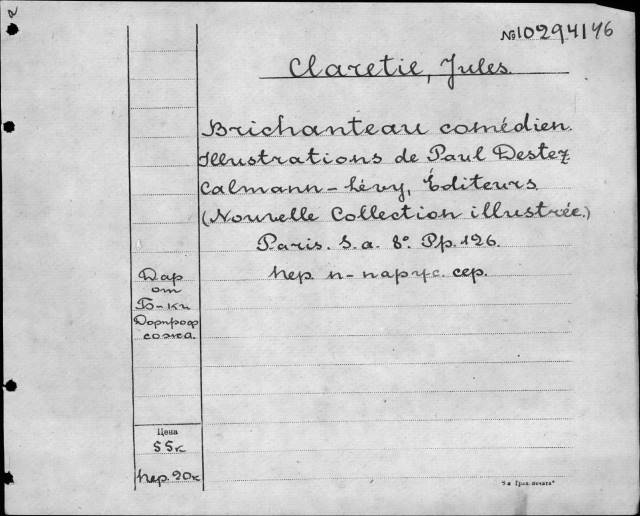 №10294146
Claretie, Jules.
Brichanteau comédien.
Illustrations de Paul Destez
Calmann-Lévy, Éditeurs
(Nouvelle Collection illustrée.)
Paris. S.a. 8°. Pp. 126.
пер. п-парус. сер.
Дар
от
Б-ки
Дорпроф
сожа.
Цена
55к
пер. 20к